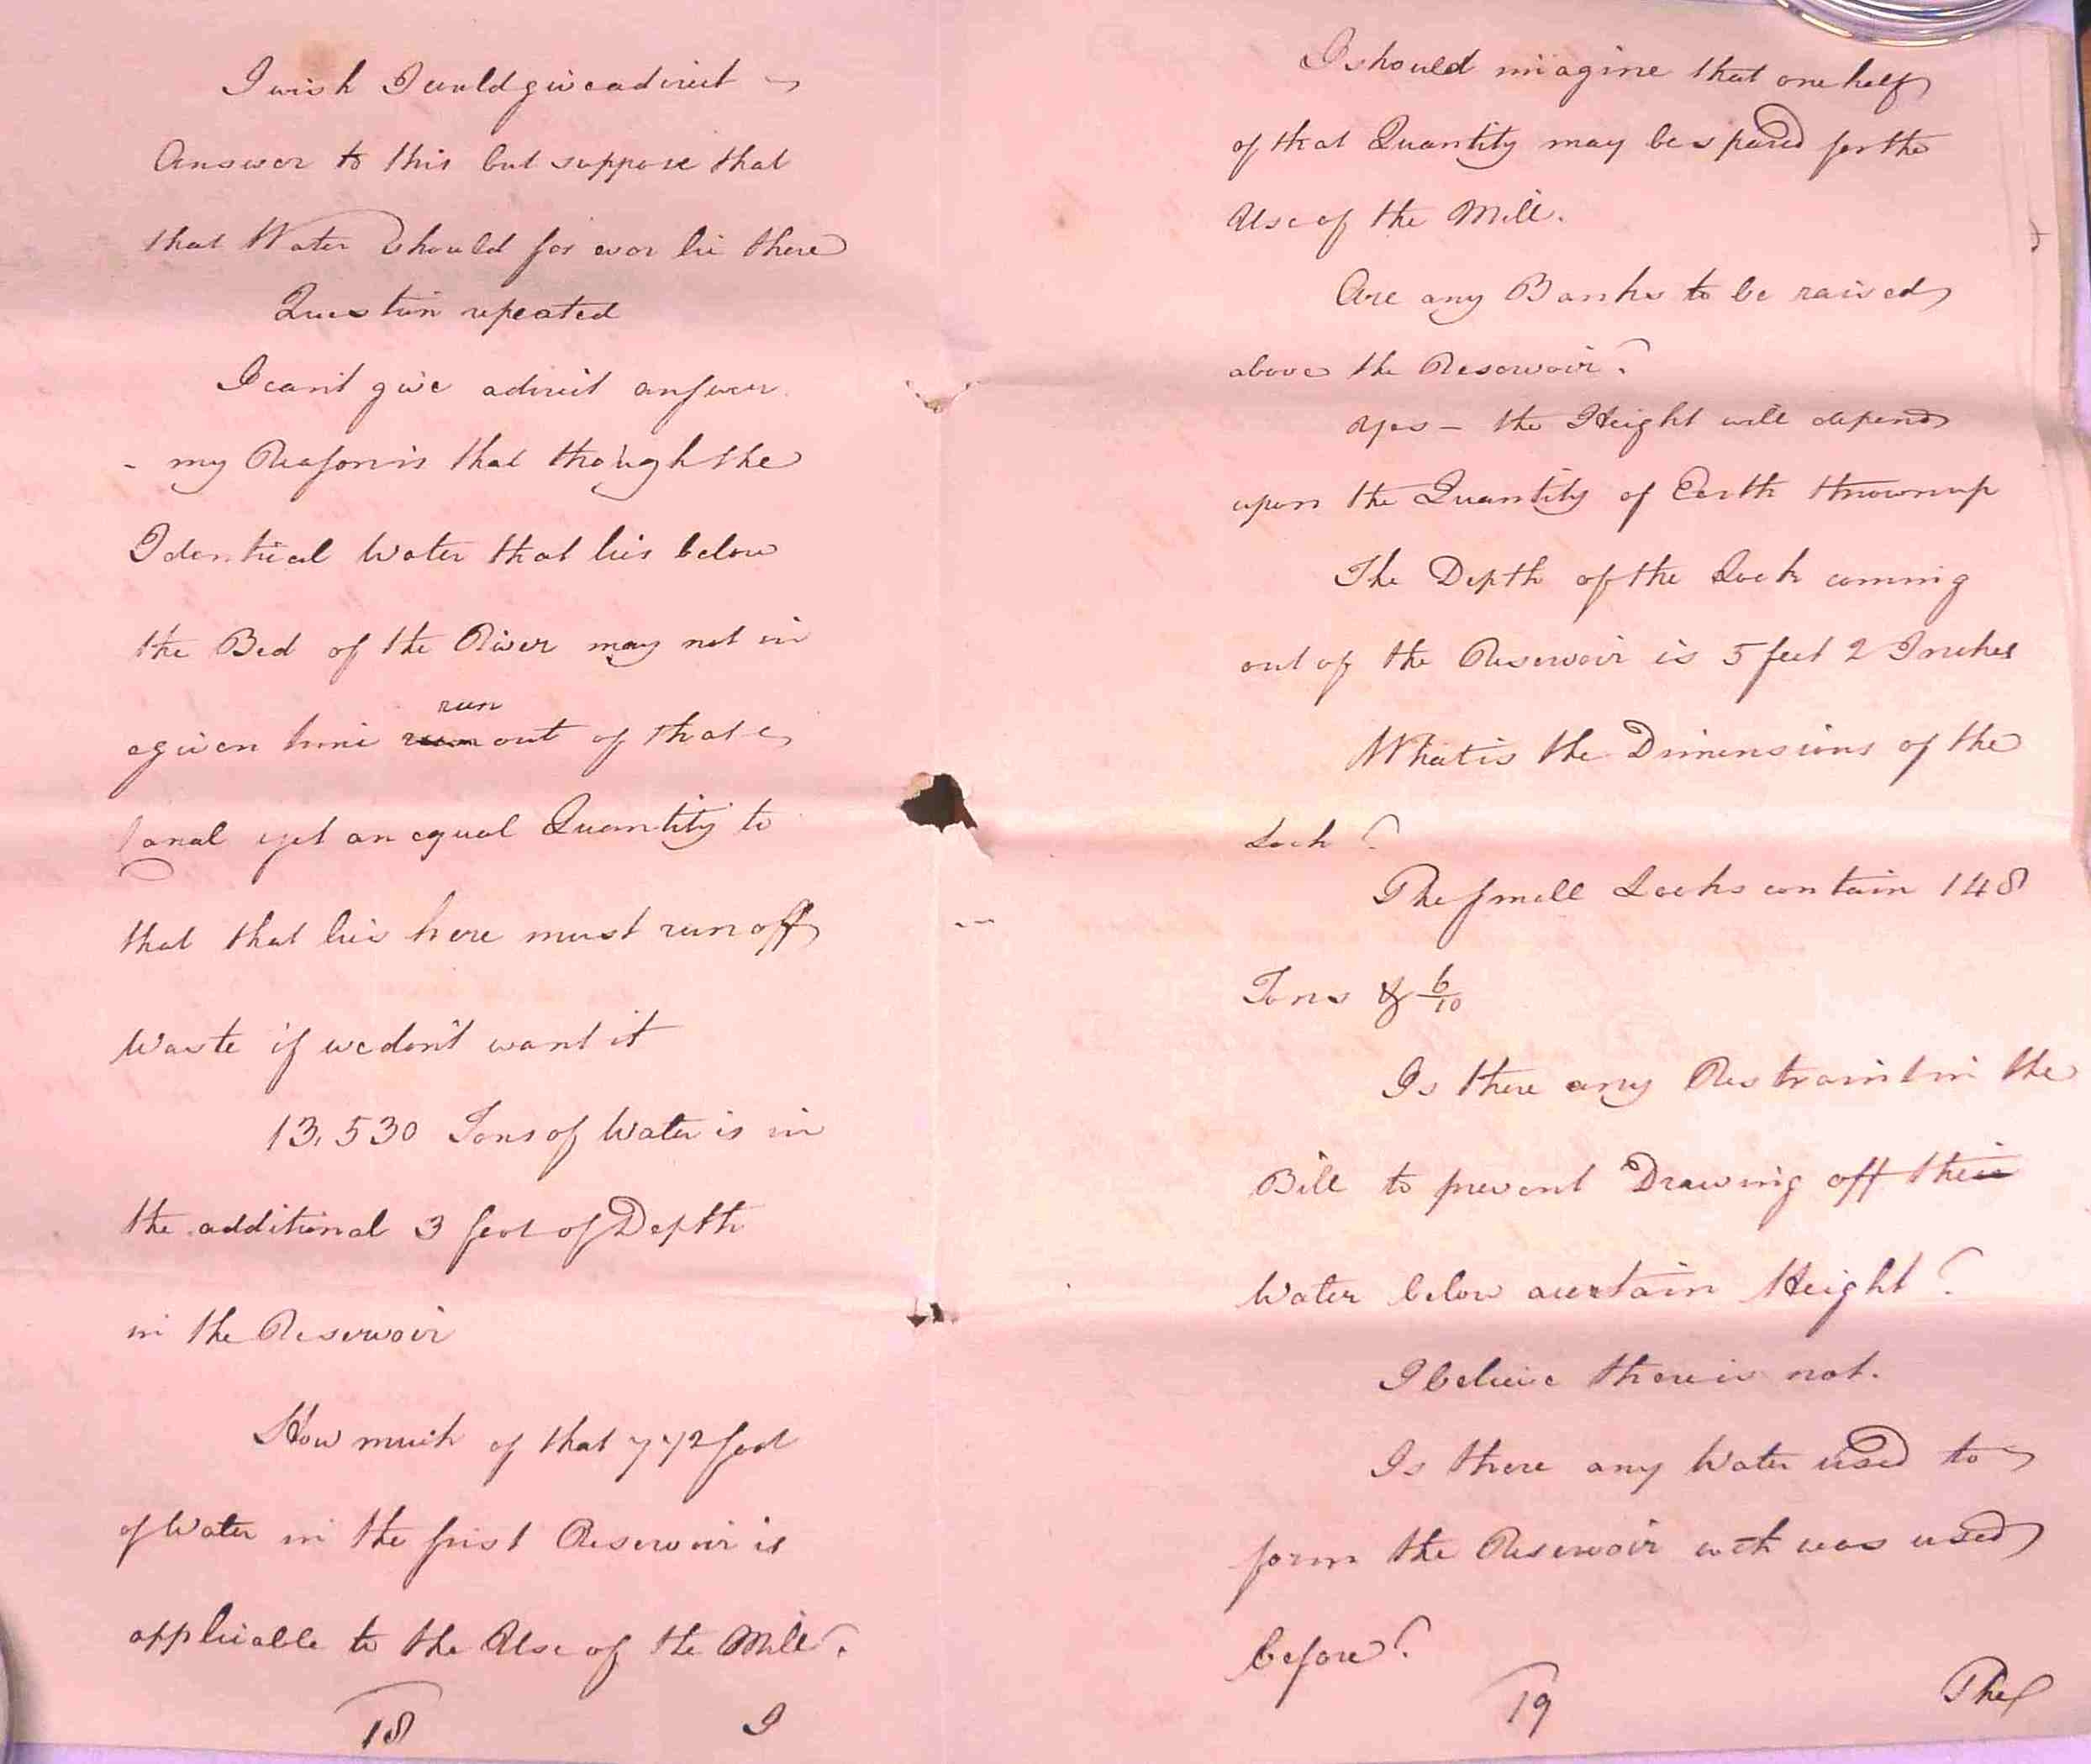 I wish I could give a direct
Answer to this but suppose that
that Water Should for ever lie there
Question repeated
I can't give a direct answer
- my Reason is that though the
Identical Water that lies below
the Bed of the River may not in
a given time run out of that
Canal yet an equal Quantity to
that that lies here must run off
Waste if we don't want it
13,530 Tons of Water is in
the additional 3 feet of Depth
in the Reservoir
How much of that 7 1/2 foot
of Water in the first Reservoir is
applicable to the Use of the Mill?
18 I
I should imagine that one half
of that Quantity may be spared for the
Use of the Mill.
Are any Banks to be raised
above the Reservoir?
Yes – the Height will depend
upon the Quantity of Earth thrown up
The Depth of the Lock coming
out of the Reservoir is 5 feet 2 Inches
What is the Dimensions of the
Lock?
The small Locks contain 148
Tons & 6/10
Is there any Restraint in the
Bill to prevent Drawing off the
Water below a certain Height?
I believe there is not.
Is there any Water used to
form the Reservoir wch was used
before?
19 The